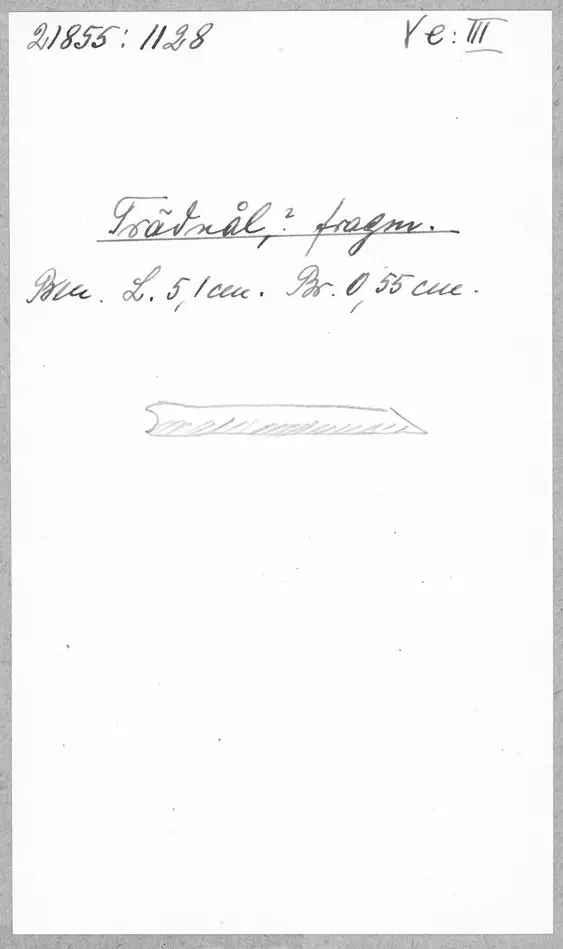 21855: 1128
Ye: III
Trädnål,? fragm.
Ben. L. 5,1 cm. Br. 0,55 cm.